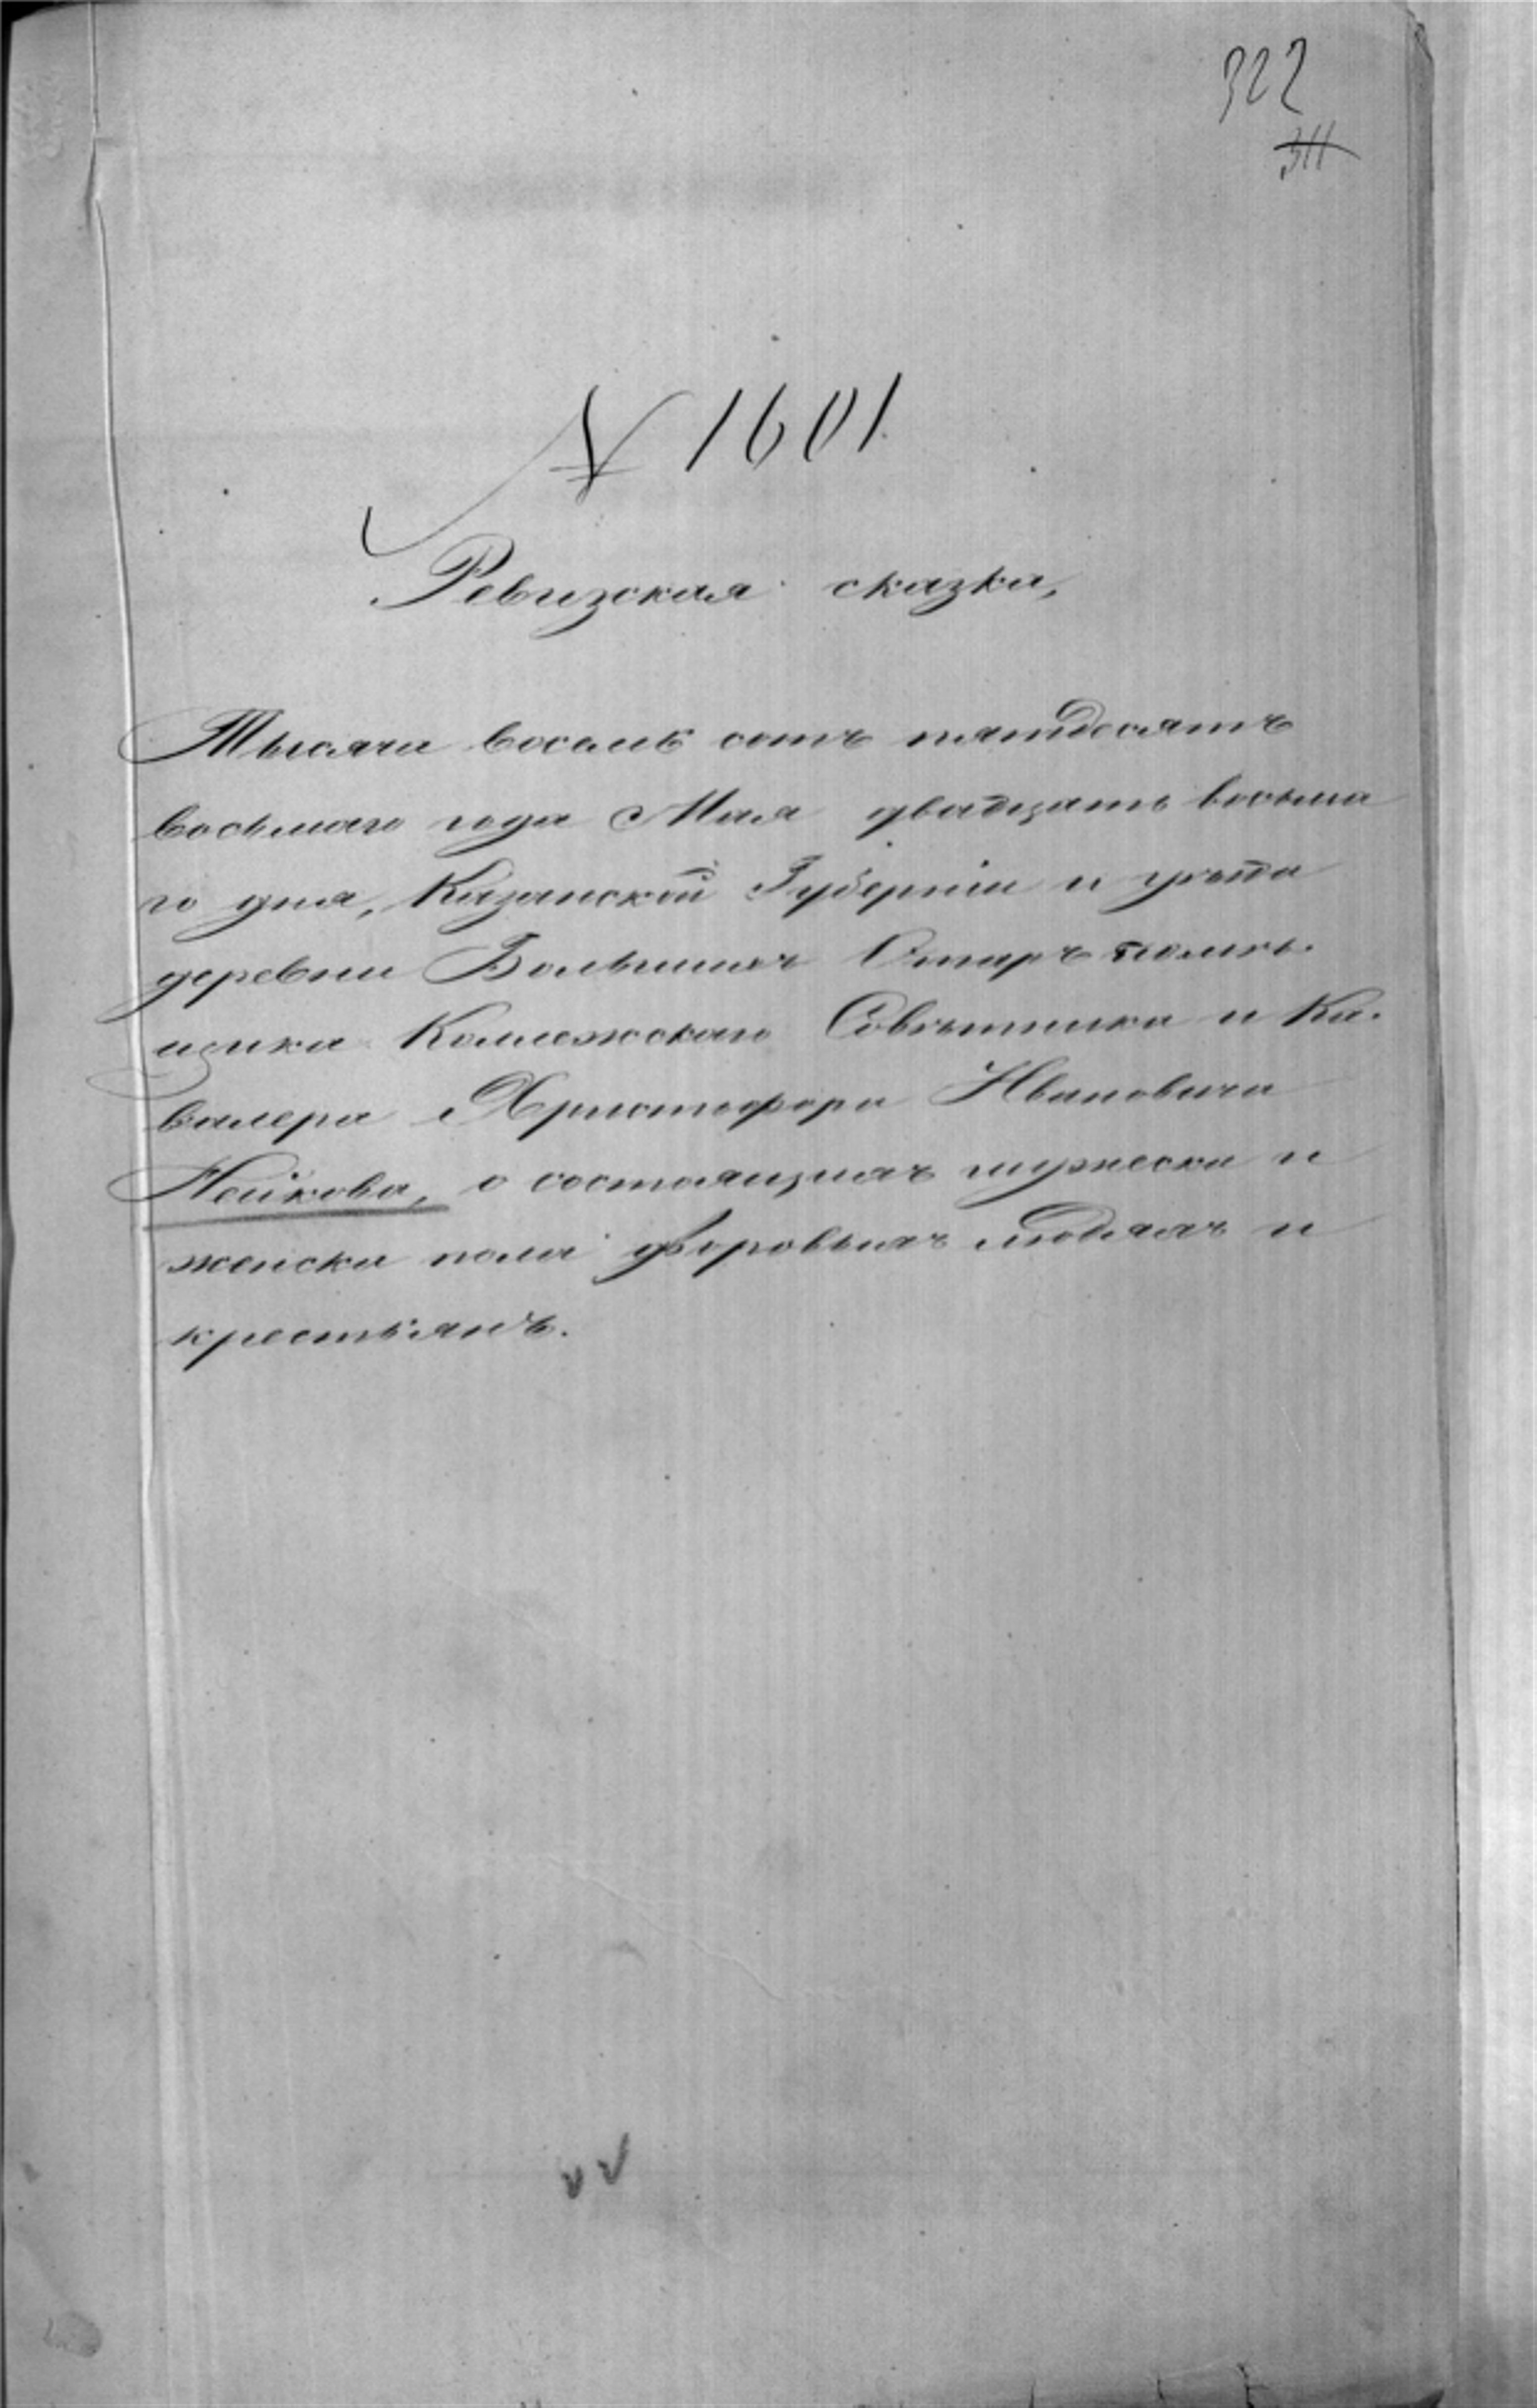 322
311
№ 1601
Ревизская сказка,
Тысяча восемь сотъ пятидесятъ
восьмаго года Мая двадцать восьма
го дня, Казанской Губерніи и уѣзда
деревни Большихъ Отаръ помѣ-
щика Коллежскаго Совѣтника и Ка-
валера Христофора Ивановича
Нейкова, о состоящихъ мужеска и
женска пола дворовыхъ людяхъ и
крестьянъ.